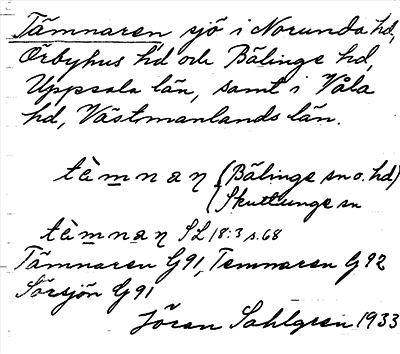 Tämnaren, sjö i Norunda hd,
Örbyhus hd och Bälinge hd,
Uppsala län, samt i Våla
hd, Västmanlands län.
tèmnaɳ (Bälinge sn o. hd)
(Skuttunge sn
tèmnaɳ SL 18:3 s. 68
Tämnaren G91, Temnaren G92
Sörsjön G91
Jöran Sahlgren 1933